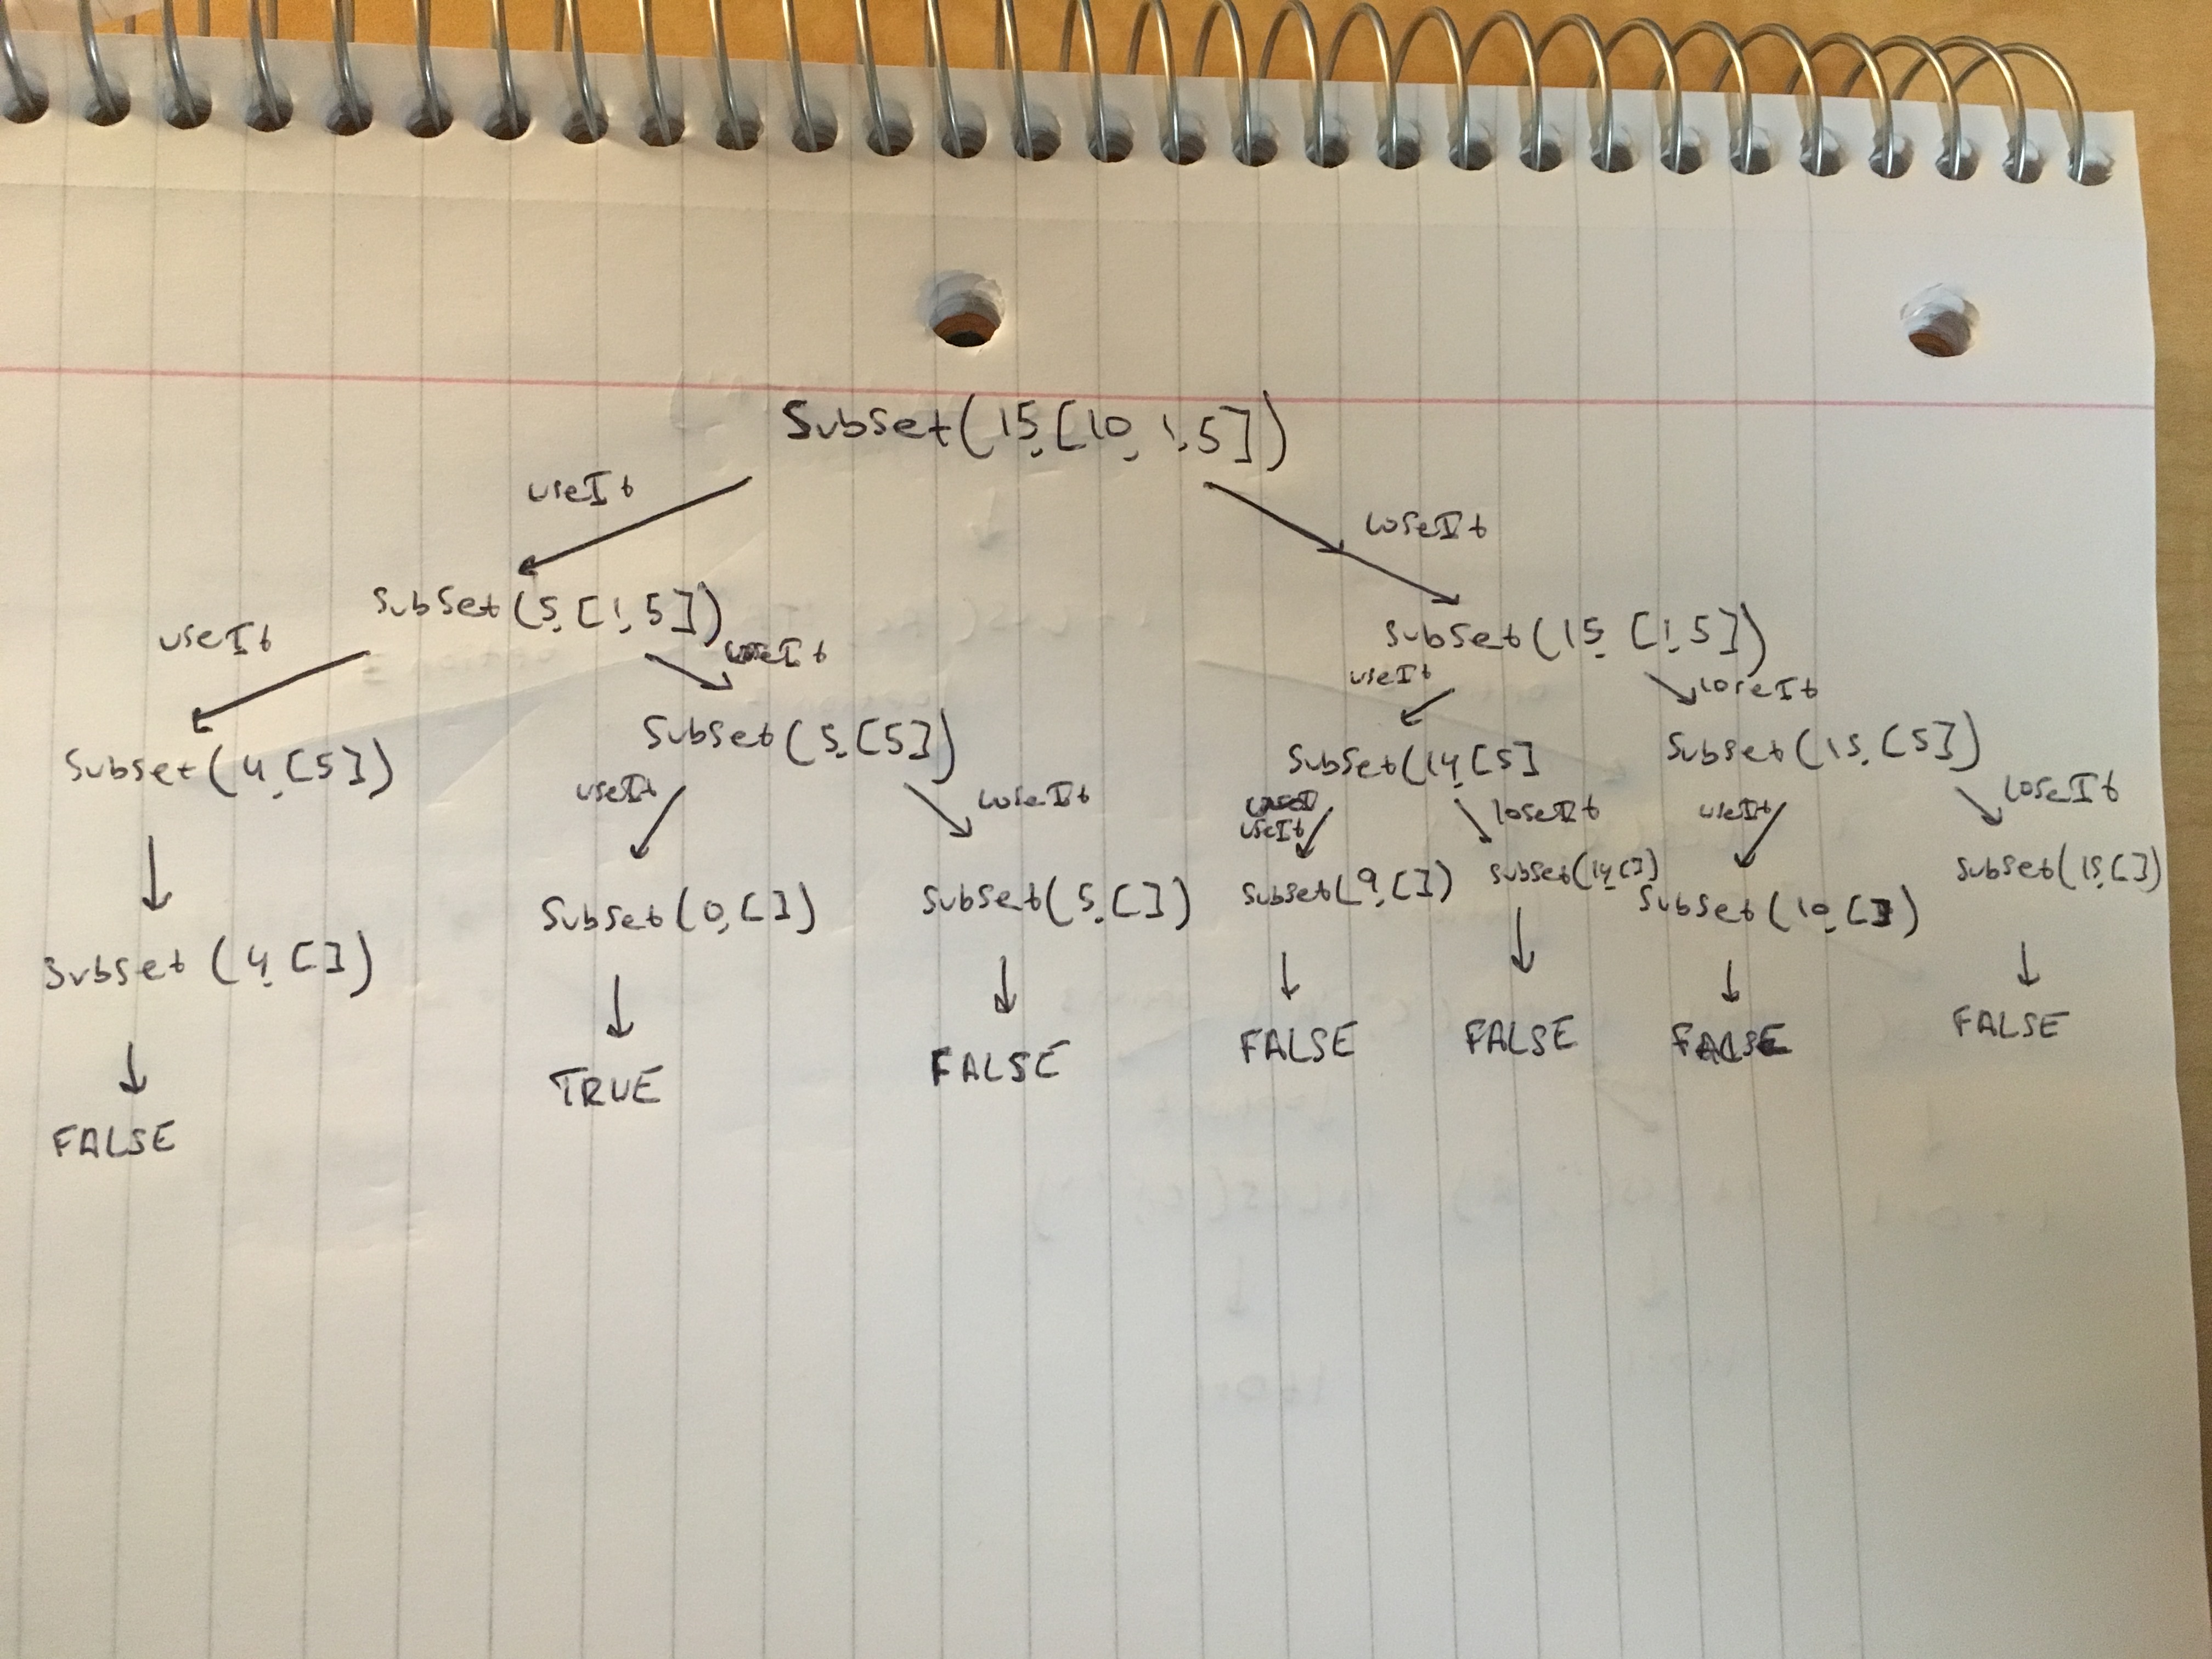 SubSet(15,[10,1,5])
useIt loseIt
SubSet(5,[1,5]) SubSet(15,[1,5])
useIt loseIt useIt loseIt
SubSet(4,[5]) SubSet(5,[5]) SubSet(14,[5] SubSet(15,[5])
useIt loseIt useIt loseIt useIt loseIt
SubSet(4,[]) SubSet(0,[]) SubSet(5,[]) SubSet(9,[]) SubSet(14,[]) SubSet(10,[]) SubSet(15,[])
FALSE TRUE FALSE FALSE FALSE FALSE FALSE